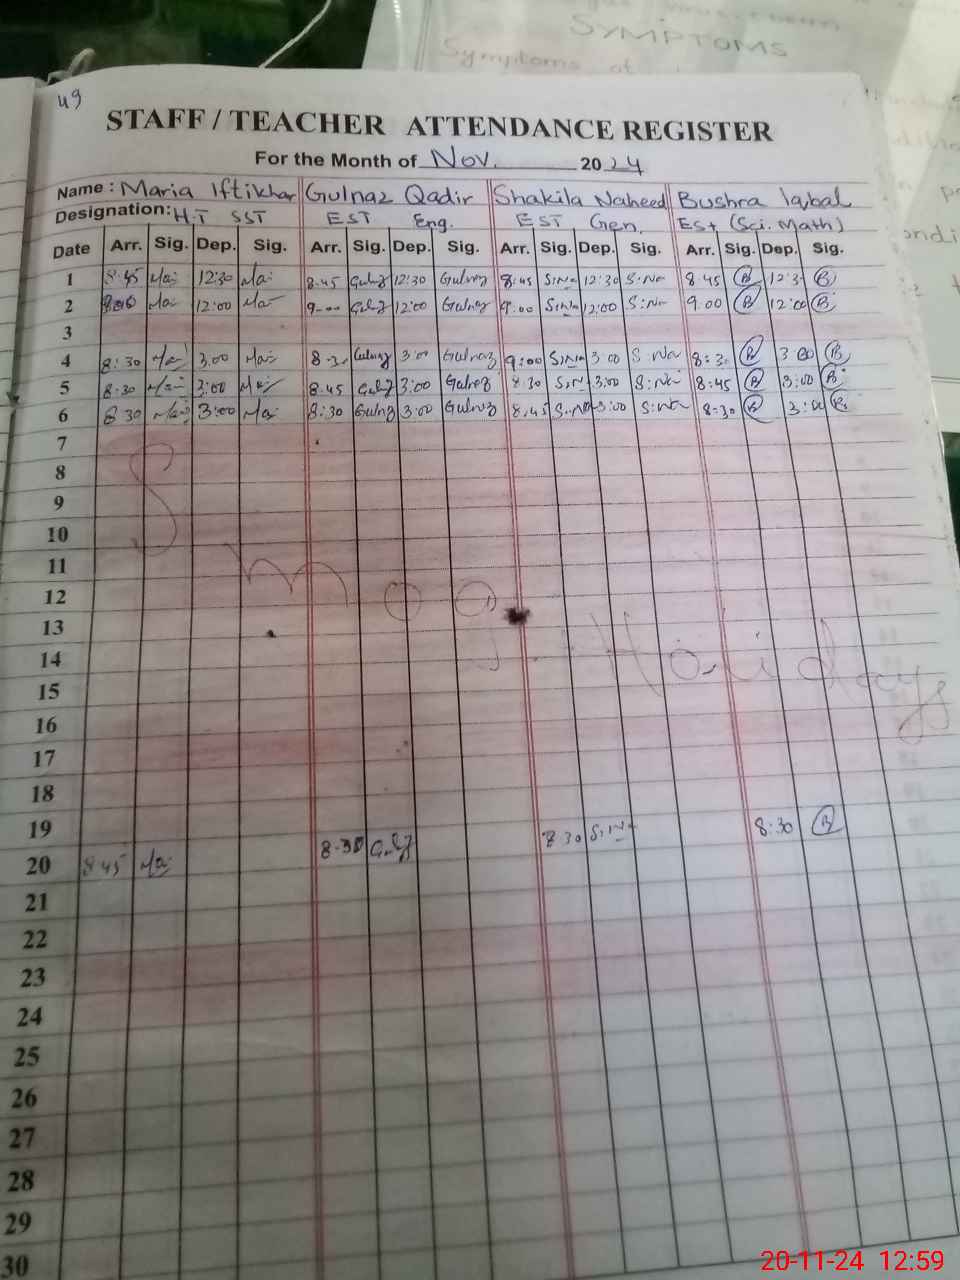 SYMPTOMS
Symptoms of
49
STAFF / TEACHER ATTENDANCE REGISTER
For the Month of Nov. 2024
Name : Maria Iftikhar Gulnaz Qadir Shakila Naheed Bushra Iqbal
Designation: H.T SST EST Eng. EST Gen. Est (Sci. Math)
Date Arr. Sig. Dep. Sig. Arr. Sig. Dep. Sig. Arr. Sig. Dep. Sig. Arr. Sig. Dep. Sig.
1 8:45 Mai 12:30 Mai 8.45 Gulz 12:30 Gulnaz 8:45 S.Na 12:30 S.Na 8 45 B 12:3 B
2 9:00 Mai 12:00 Mai 9.00 Gulz 12:00 Gulnaz 9:00 S.Na 12:00 S:Na 9.00 B 12:00 B
3
4 8:30 Mai 3.00 Mai 8.30 Gulnaz 3:00 Gulnaz 9:00 S.Na 3:00 S:Na 8:30 B 3 00 B
5 8:30 Mai 3:00 Mai 8.45 Gulz 3:00 Gulnaz 8:30 S.N 3:00 S:Na 8:45 B 3:00 B
6 8 30 Mai 3:00 Mai 8:30 Gulnaz 3:00 Gulnaz 8.45 S.Na 3:00 S:Na 8:30 B 3:00 B
7
8
9
10
11
12
13
Smog Holidays
14
15
16
17
18
19
20 8 45 Mai 8.30 Gulz 8 30 S.Na 8:30 B
21
22
23
24
25
26
27
28
29
30
20-11-24 12:59